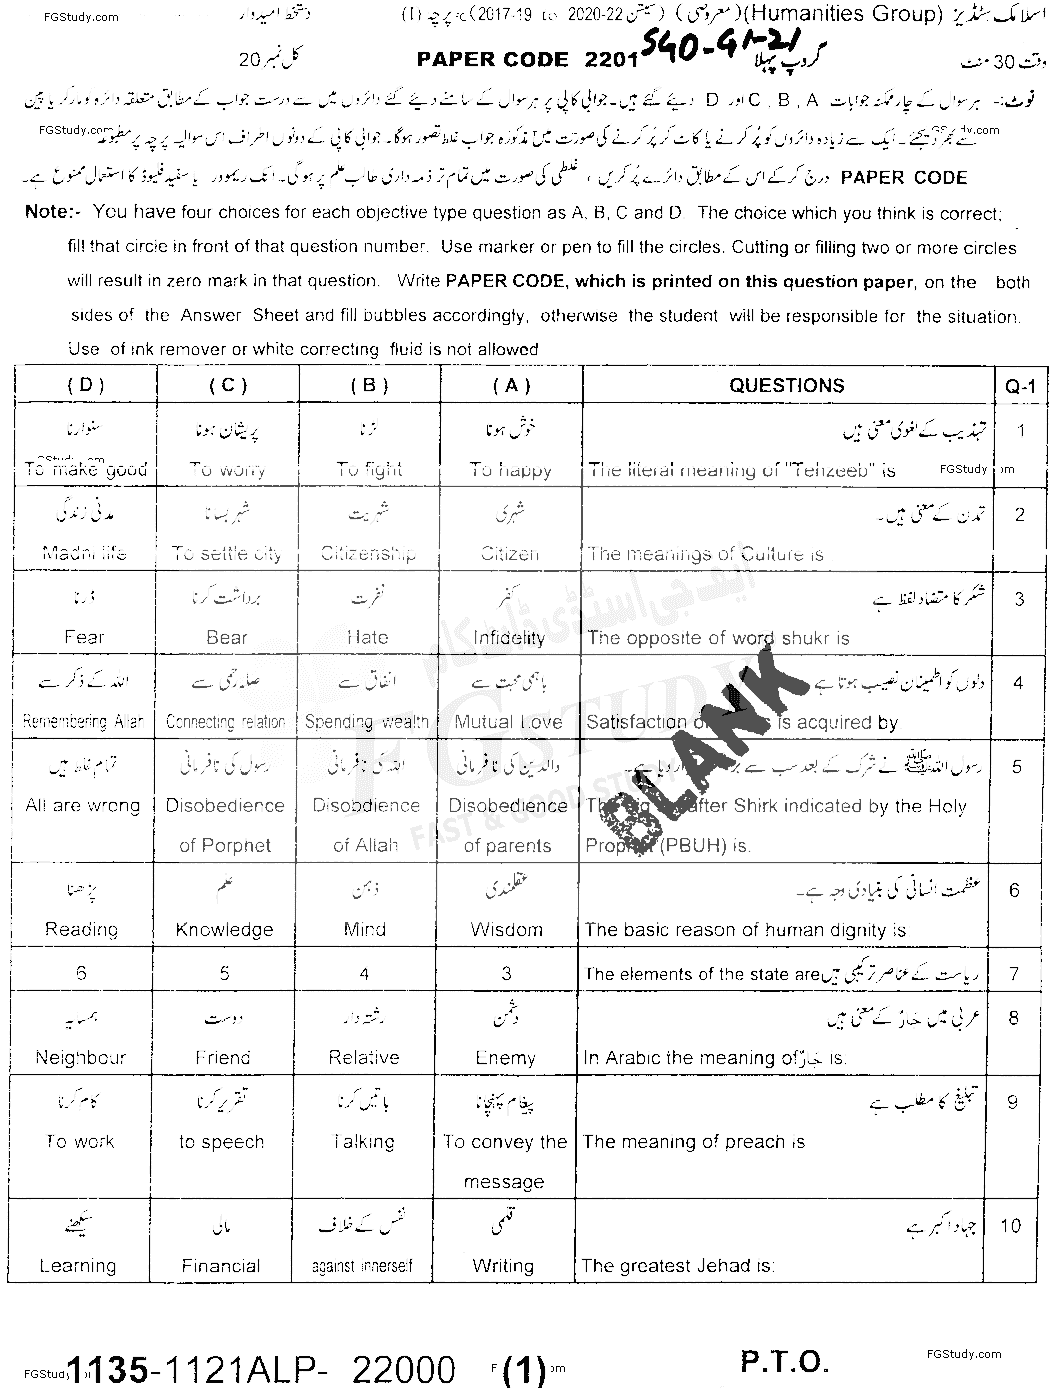 FGStudy.com دستخط امیدوار اسلامک سٹڈیز (Humanities Group)(معروضی) (سیشن 2020-22 to 2017-19) پرچہ (I)
کل نمبر 20 PAPER CODE 2201 گروپ پہلا SGD-G1-21 وقت 30 منٹ
نوٹ:۔ ہر سوال کے چار ممکنہ جوابات A ، B ، C اور D دیئے گئے ہیں۔ جوابی کاپی پر ہر سوال کے سامنے دیئے گئے دائروں میں سے درست جواب کے مطابق متعلقہ دائرہ کو مارکر یا پین
FGStudy.com سے بھر دیجئے۔ ایک سے زیادہ دائروں کو پُر کرنے یا کاٹ کر پُر کرنے کی صورت میں مذکورہ جواب غلط تصور ہوگا۔ جوابی کاپی کے دونوں اطراف اس سوالیہ پرچہ پر مطبوعہ
PAPER CODE درج کر کے اس کے مطابق دائرے پُر کریں ، غلطی کی صورت میں تمام تر ذمہ داری طالب علم پر ہوگی۔ انک ریموور یا سفید فلیوڈ کا استعمال ممنوع ہے۔
Note:- You have four choices for each objective type question as A, B, C and D. The choice which you think is correct;
fill that circle in front of that question number. Use marker or pen to fill the circles. Cutting or filling two or more circles
will result in zero mark in that question. Write PAPER CODE, which is printed on this question paper, on the both
sides of the Answer Sheet and fill bubbles accordingly, otherwise the student will be responsible for the situation.
Use of ink remover or white correcting fluid is not allowed
(D) (C) (B) (A) QUESTIONS Q-1
سنوارنا پریشان ہونا لڑنا خوش ہونا تہذیب کے لغوی معنی ہیں 1
To make good To worry To fight To happy The literal meaning of "Tehzeeb" is FGStudy
مدنی زندگی شہر بسانا شہریت شہری تمدن کے معنی ہیں۔ 2
Madni life To settle city Citizenship Citizen The meanings of Culture is
ڈرنا برداشت کرنا نفرت کفر شکر کا متضاد لفظ ہے 3
Fear Bear Hate Infidelity The opposite of word shukr is
اللہ کے ذکر سے صلہ رحمی سے انفاق سے باہمی محبت سے دلوں کو اطمینان نصیب ہوتا ہے 4
Remembering Allah Connecting relation Spending wealth Mutual Love Satisfaction is acquired by
تمام غلط ہیں رسول کی نافرمانی اللہ کی نافرمانی والدین کی نافرمانی رسول اللہ ﷺ نے شرک کے بعد سب سے 5
All are wrong Disobedience Disobdience Disobedience The after Shirk indicated by the Holy
of Porphet of Allah of parents Prophet (PBUH) is.
BLANK
پڑھنا علم ذہن عقلمندی عظمت انسانی کی بنیادی وجہ ہے۔ 6
Reading Knowledge Mind Wisdom The basic reason of human dignity is
6 5 4 3 The elements of the state are ریاست کے عناصر ترکیبی ہیں 7
ہمسایہ دوست رشتہ دار دشمن عربی میں جَارٌ کے معنی ہیں 8
Neighbour Friend Relative Enemy In Arabic the meaning of جَارٌ is:
کام کرنا تقریر کرنا باتیں کرنا پیغام پہنچانا تبلیغ کا مطلب ہے 9
To work to speech Talking To convey the The meaning of preach is
message
سیکھنے مالی نفس کے خلاف قلمی جہاد اکبر ہے 10
Learning Financial against innerself Writing The greatest Jehad is:
1135-1121ALP- 22000 (1) P.T.O. FGStudy.com